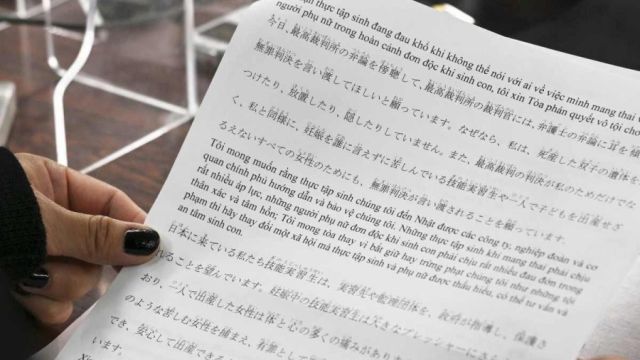 thực tập sinh đang đau khổ khi không thể nói với ai về việc mình mang thai
người phụ nữ trong hoàn cảnh đơn độc khi sinh con, tôi xin Tòa phán quyết vô tội cho
今日、最高裁判所の弁論を傍聴して、最高裁判所の裁判官には、弁護士の弁論に耳を傾
無罪判決を言い渡してほしいと願っています。なぜなら、私は、死産した双子の遺体を
つけたり、放置したり、隠したりしていません。また、最高裁判所の判決が私のためだけでな
く、私と同様に、妊娠を誰に言えずに苦しんでいる技能実習生や一人で子どもを出産せざ
るえないすべての女性のためにも、無罪判決が言い渡されることを願っています。
Tôi mong muốn rằng thực tập sinh chúng tôi đến Nhật được các công ty, nghiệp đoàn và cơ
quan chính phủ hướng dẫn và bảo vệ chúng tôi. Những thực tập sinh khi mang thai phải chịu
rất nhiều áp lực, những người phụ nữ đơn độc khi sinh con phải chịu rất nhiều đau đớn trong
thân xác và tâm hồn; Tôi mong tòa thay vì bắt giữ hay trừng phạt chúng tôi như những tội
phạm thì hãy thay đổi một xã hội mà thực tập sinh và phụ nữ được thấu hiểu, có thể tư vấn và
an tâm sinh con.
日本に来ている私たち技能実習生は、実習先や監理団体を、政府が指導し、保護さ
れることを望んでいます。妊娠中の技能実習生は大きなプレッシャーに
おり、一人で出産した女性は体と心の多くの痛みがあり
のような苦しむ女性を捕まえ、有罪として
でき、安心して出産できる
います。